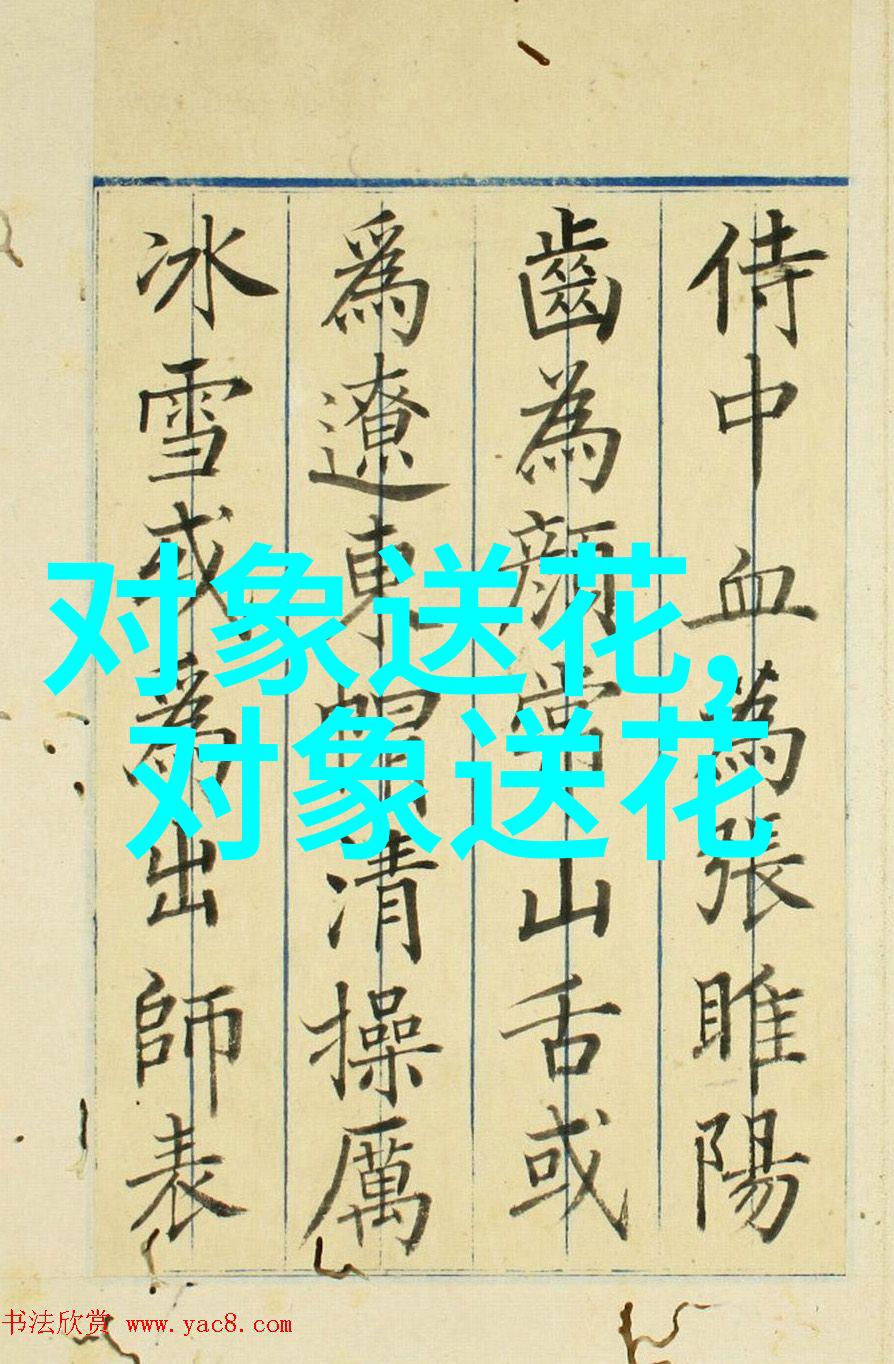 侍中血為張睢陽
齒為顏常山舌或
爲遼東帽清操厲
冰雪或為出師表
对象送花,
对象送花
书法欣赏 www.yac8.com